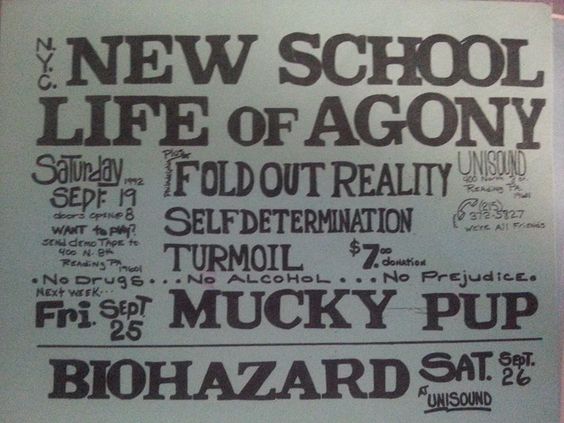 N.Y.C. NEW SCHOOL
LIFE OF AGONY
Saturday 1992
SEPT. 19
doors open @ 8
WANT to PLAY?
SEND DEMO TAPE to
400 N. 8th
READING PA
19601
FOLD OUT REALITY
SELF DETERMINATION
TURMOIL
$7.00 donation
UNISOUND
READING PA
19601
(215)
372-5827
WE'RE All FriENds
• No Drugs . . . No Alcohol . . . No Prejudice •
NEXT WEEK...
Fri. SEPT 25
MUCKY PUP
BIOHAZARD
SAT. SEPT. 26
AT UNISOUND